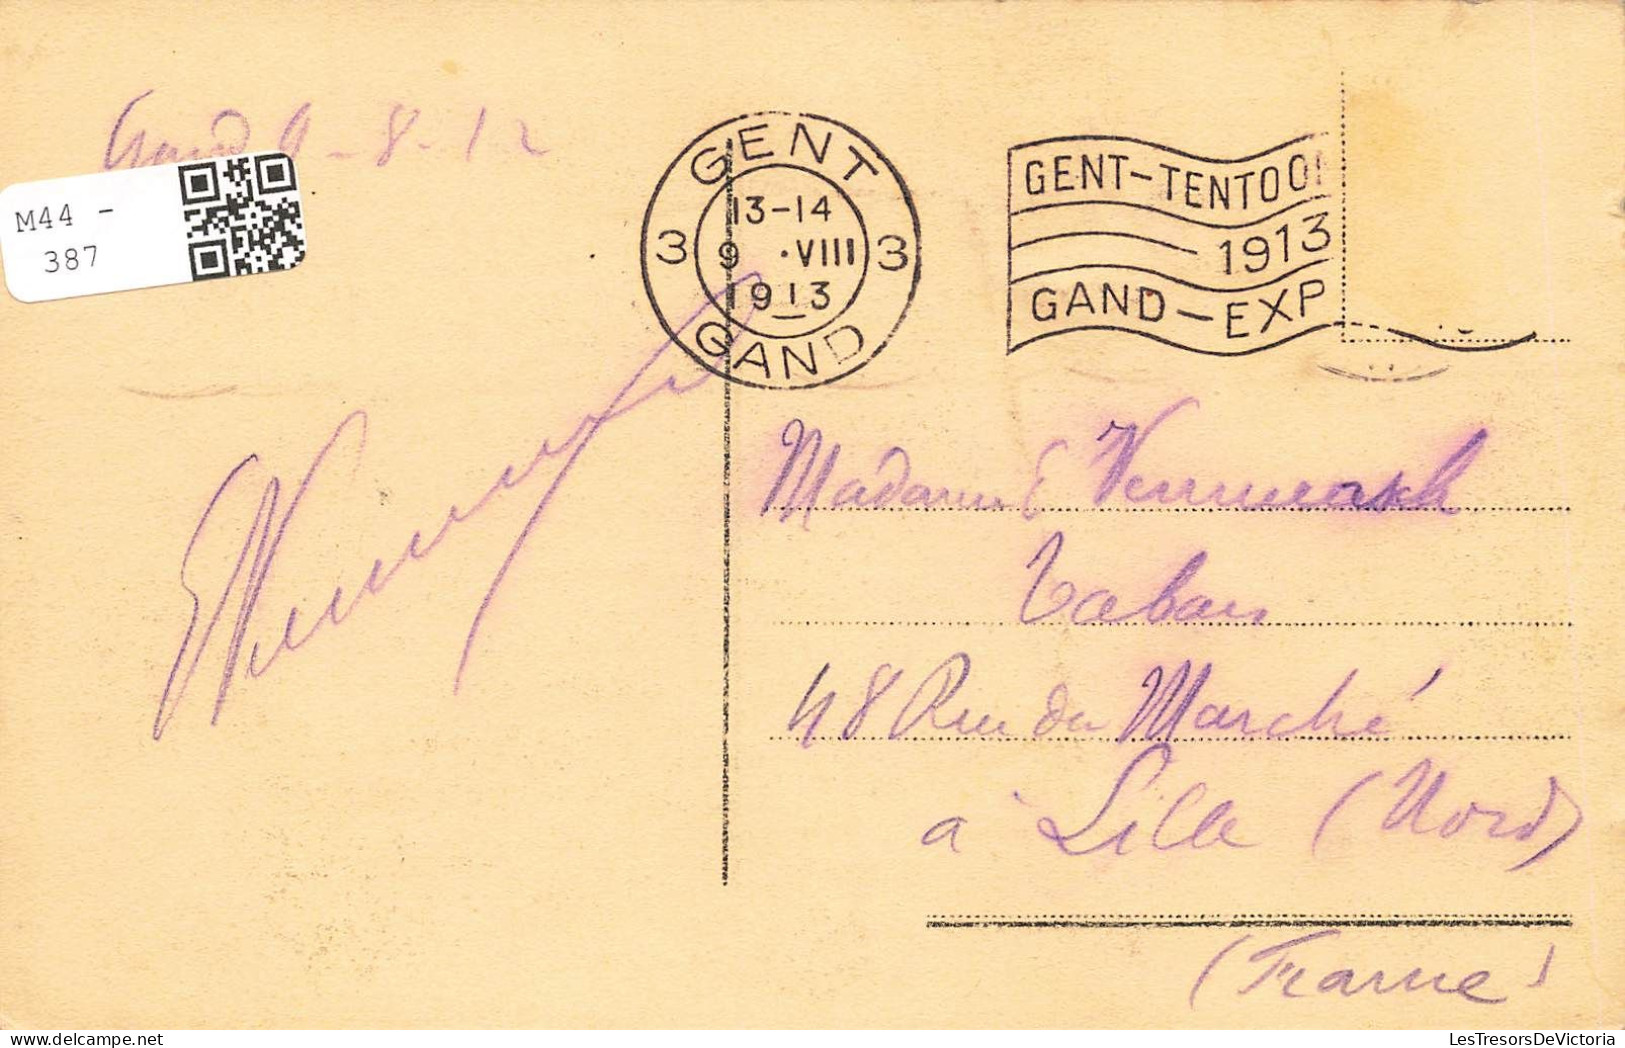 Gand 9-8-12
M44 -
387
GENT
13-14
3 9 ·VIII 3
1913
GAND
GENT-TENTOO
1913
GAND-EXP
Madame E
Tabac
48 Rue du Marché
à Lille (Nord)
(France)
LesTresorsDeVictoria